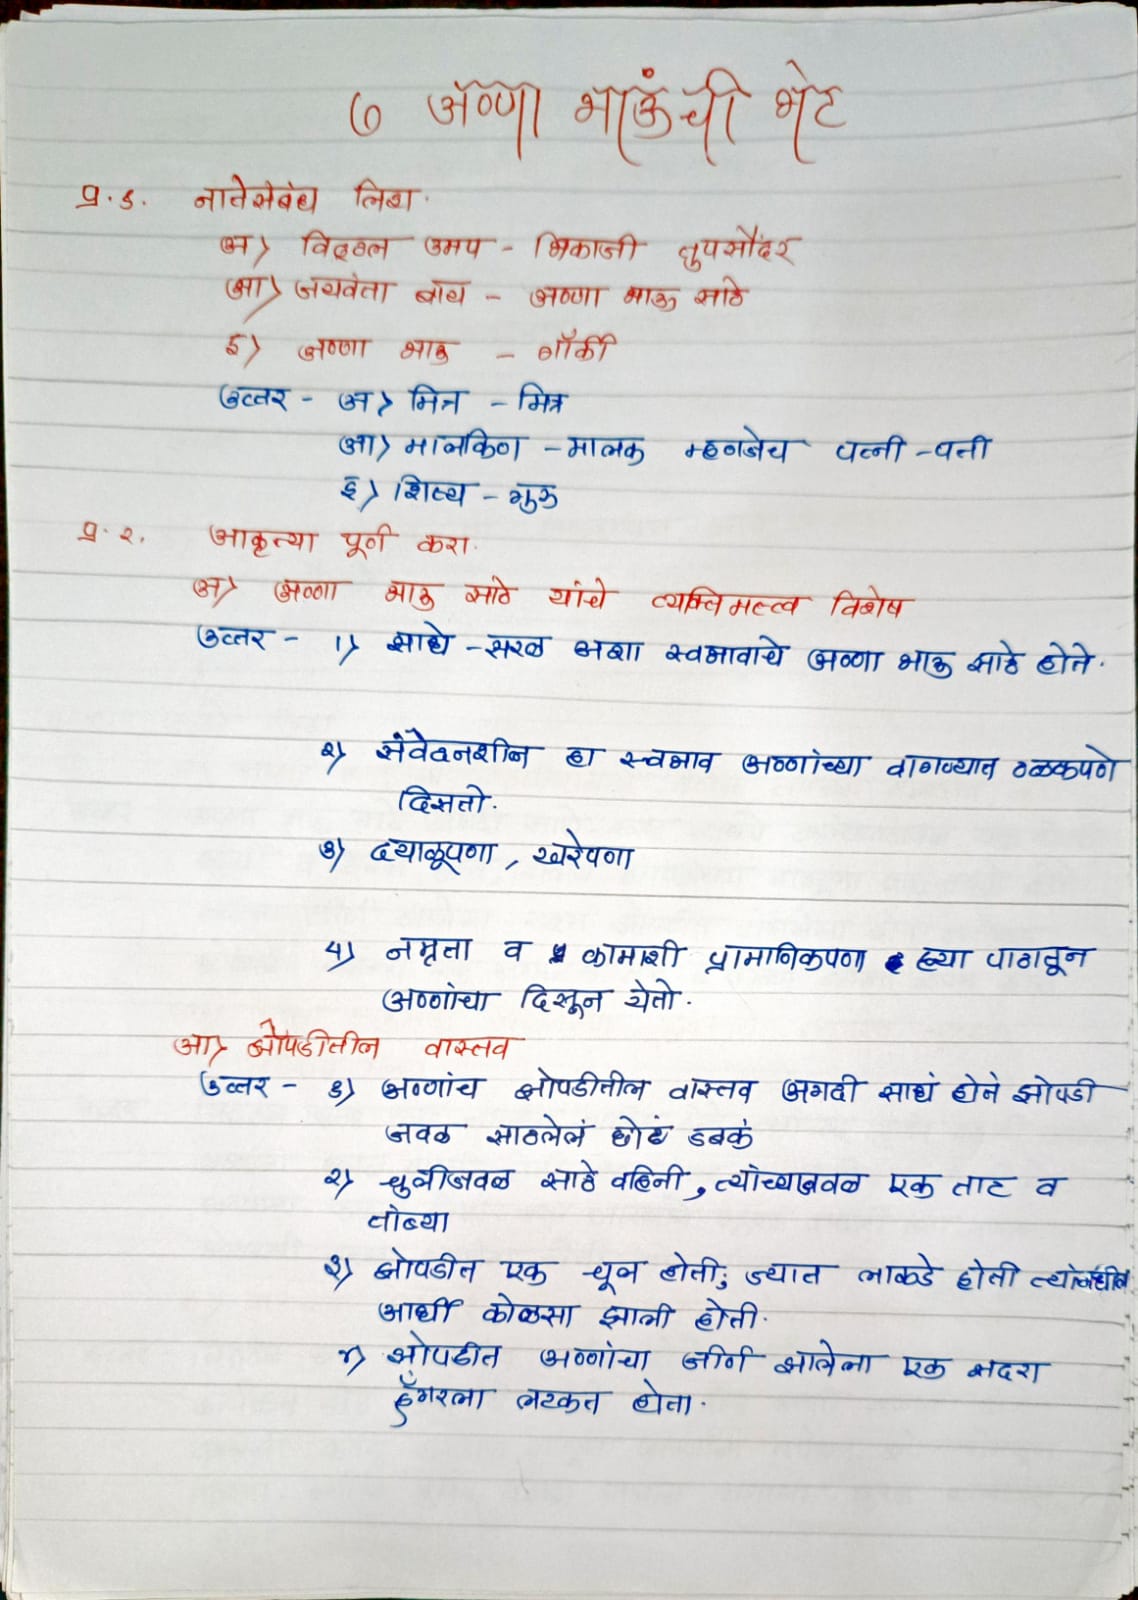 ७ अण्णा भाऊंची भेट
प्र.१. नातेसंबंध लिहा.
अ) विठ्ठल उमप - भिकाजी तुपसौंदर
आ) जयवंता बाय - अण्णा भाऊ साठे
इ) अण्णा भाऊ - गॉर्की
उत्तर - अ) मित्र - मित्र
आ) मालकिण - मालक म्हणजेच पत्नी - पती
इ) शिष्य - गुरू
प्र.२. आकृत्या पूर्ण करा.
अ) अण्णा भाऊ साठे यांचे व्यक्तिमत्त्व विशेष
उत्तर - १) साधे - सरळ अशा स्वभावाचे अण्णा भाऊ साठे होते.
२) संवेदनशील हा स्वभाव अण्णांच्या वागण्यात ठळकपणे
दिसतो.
३) दयाळूपणा, खरेपणा
4) नम्रता व कामाशी प्रामाणिकपणा ह्या पाठातून
अण्णांचा दिसून येतो.
आ) झोपडीतील वास्तव
उत्तर - १) अण्णांच झोपडीतील वास्तव अगदी साधं होतं झोपडी
जवळ साठलेलं छोटं डबकं
२) चुलीजवळ साठे वहिनी, त्यांच्याजवळ एक ताट व
तांब्या
३) झोपडीत एक चूल होती; ज्यात लाकडे होती त्यांमधील
आर्धी कोळसा झाली होती.
४) झोपडीत अण्णांचा जीर्ण झालेला एक सदरा
हँगरला लटकत होता.